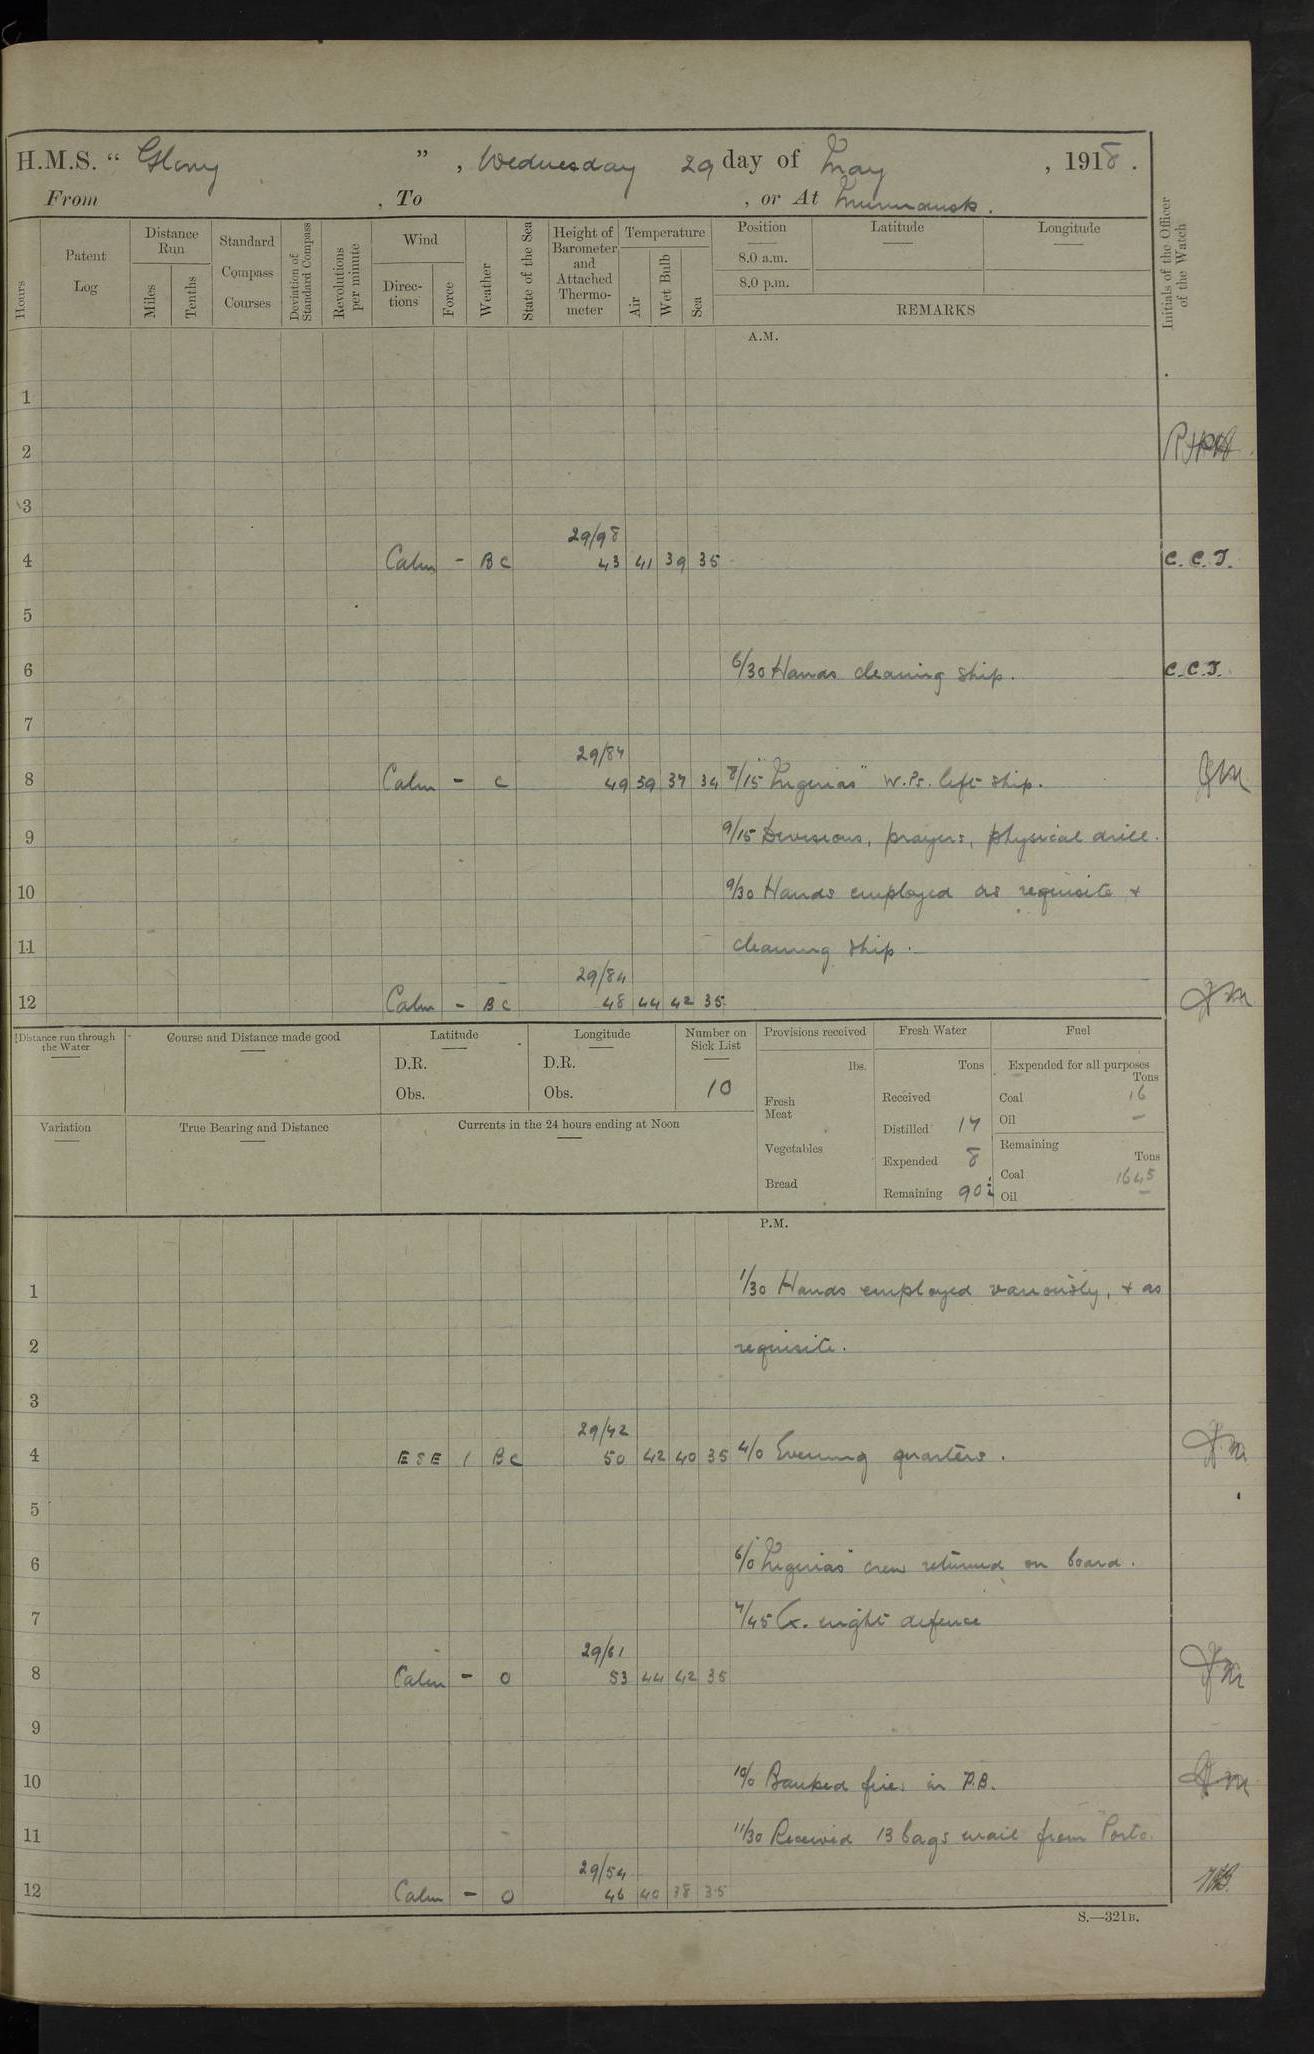 H.M.S. “ Glory ” , Wednesday 29 day of May , 1918 .
From , To , or At Murmansk .
Hours
Patent Log
Distance Run
Miles
Tenths
Standard Compass Courses
Deviation of Standard Compass
Revolutions per minute
Wind
Directions
Force
Weather
State of the Sea
Height of Barometer and Attached Thermometer
Temperature
Air
Wet Bulb
Sea
Position
8.0 a.m.
8.0 p.m.
Latitude
Longitude
REMARKS
Initials of the Officer of the Watch
A.M.
1
2
3
29/98
4 Calm - B C 43 41 39 35 C. C. J.
5
6 6/30 Hands cleaning ship. C.C.J.
7
29/84
8 Calm - C 49 39 37 34 8/15 W.Ps. left ship.
9 9/15 Divisions, prayers, physical drill.
10 9/30 Hands employed as requisite &
11 cleaning ship.
29/84
12 Calm - B C 48 44 42 35
Distance run through the Water
Course and Distance made good
Latitude
D.R.
Obs.
Longitude
D.R.
Obs.
Number on Sick List
10
Provisions received
lbs.
Fresh Meat
Vegetables
Bread
Fresh Water
Tons
Received
Distilled 17
Expended 8
Remaining 90½
Fuel
Expended for all purposes
Tons
Coal 16
Oil –
Remaining
Tons
Coal 1645
Oil –
Variation
True Bearing and Distance
Currents in the 24 hours ending at Noon
P.M.
1 1/30 Hands employed variously, & as
2 requisite.
3
29/42
4 E S E 1 B C 50 42 40 35 4/0 Evening quarters.
5
6 6/0 crew returned on board.
7 7/45 Ex. night defence
29/61
8 Calm - O 53 44 42 35
9
10 10/0 Banked fires in P.B.
11 11/30 Received 13 bags mail from
29/54
12 Calm - O 46 40 38 35
S.—321B.